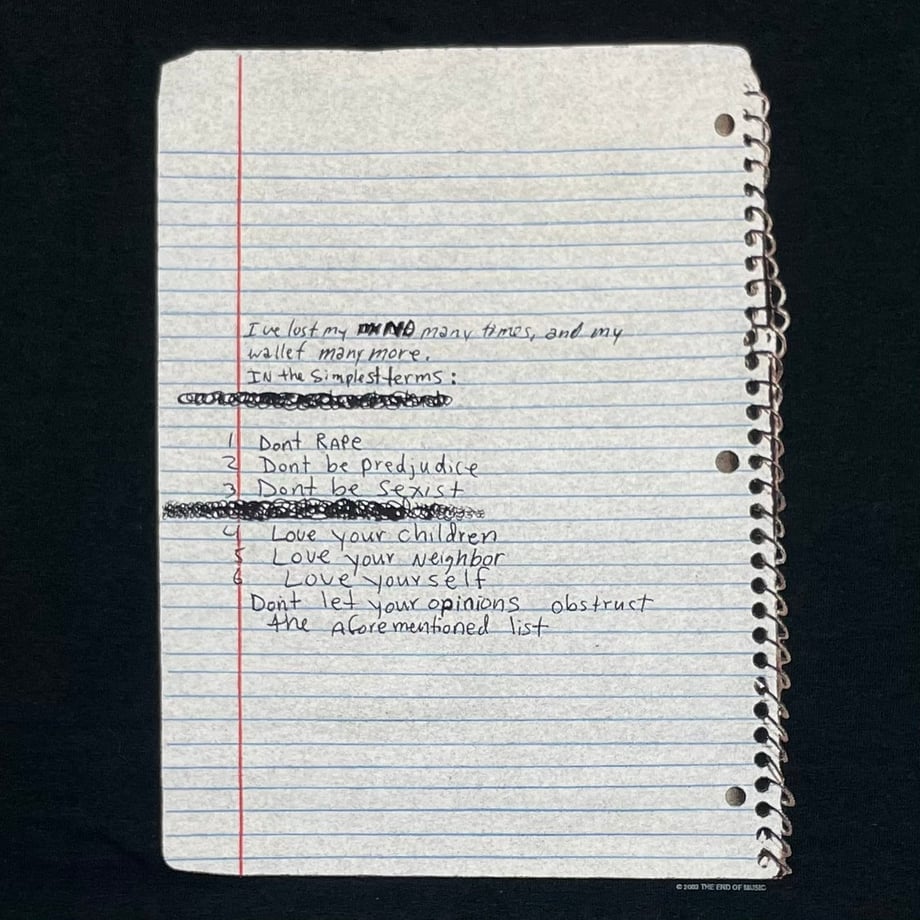 I've lost my MIND many times, and my
wallet many more.
IN the simplest terms:
1 Dont RAPE
2 Dont be predjudice
3 Dont be sexist
4 Love your children
5 Love your Neighbor
6 Love yourself
Dont let your opinions obstruct
the aforementioned list
© 2003 THE END OF MUSIC